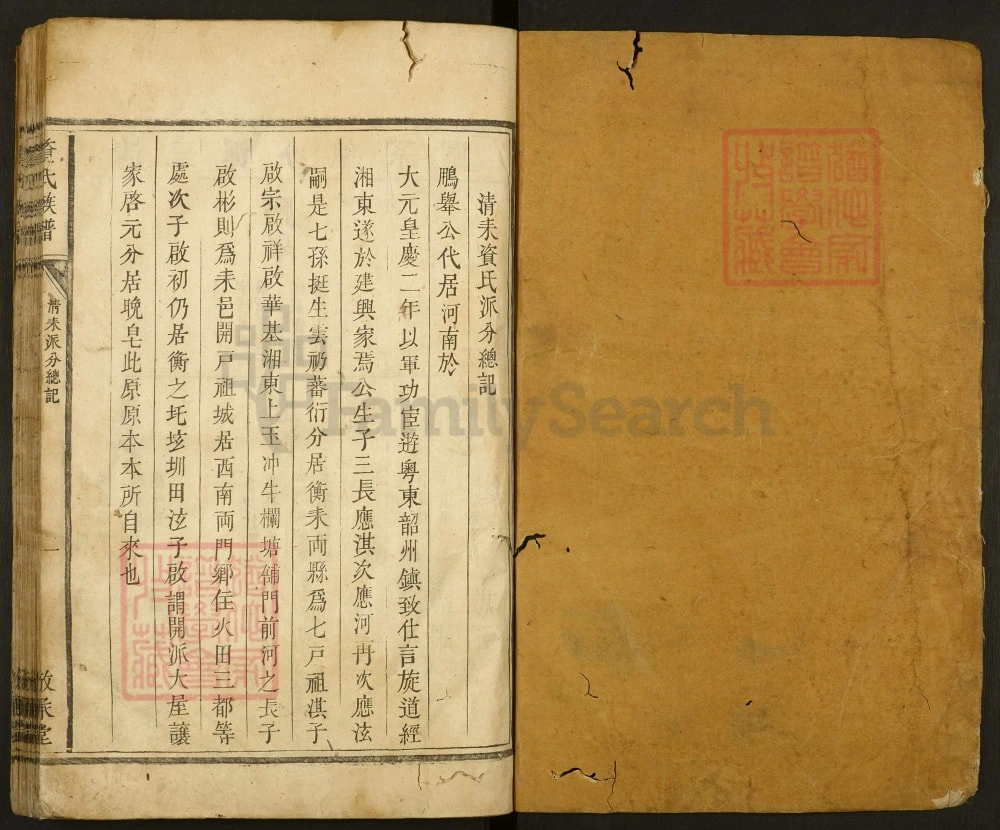 清耒資氏派分總記
鵰舉公代居河南於
大元皇慶二年以軍功宦遊粤東韶州鎮致仕言旋道經
湘東遂於建興家焉公生子三長應淇次應河再次應泫
嗣是七孫挺生雲礽蕃衍分居衡耒両縣為七戸祖淇子
啟宗啟祥啟華基湘東上玉冲牛欄塘舗門前河之長子
啟彬則為耒邑開戸祖城居西南両門鄉住火田三都等
處次子啟初仍居衡之圫垓圳田泫子啟謂開派大屋讓
家啓元分居晚皂此原原本本所自來也
資氏族譜
清耒派分總記
一
敦承堂
FamilySearch